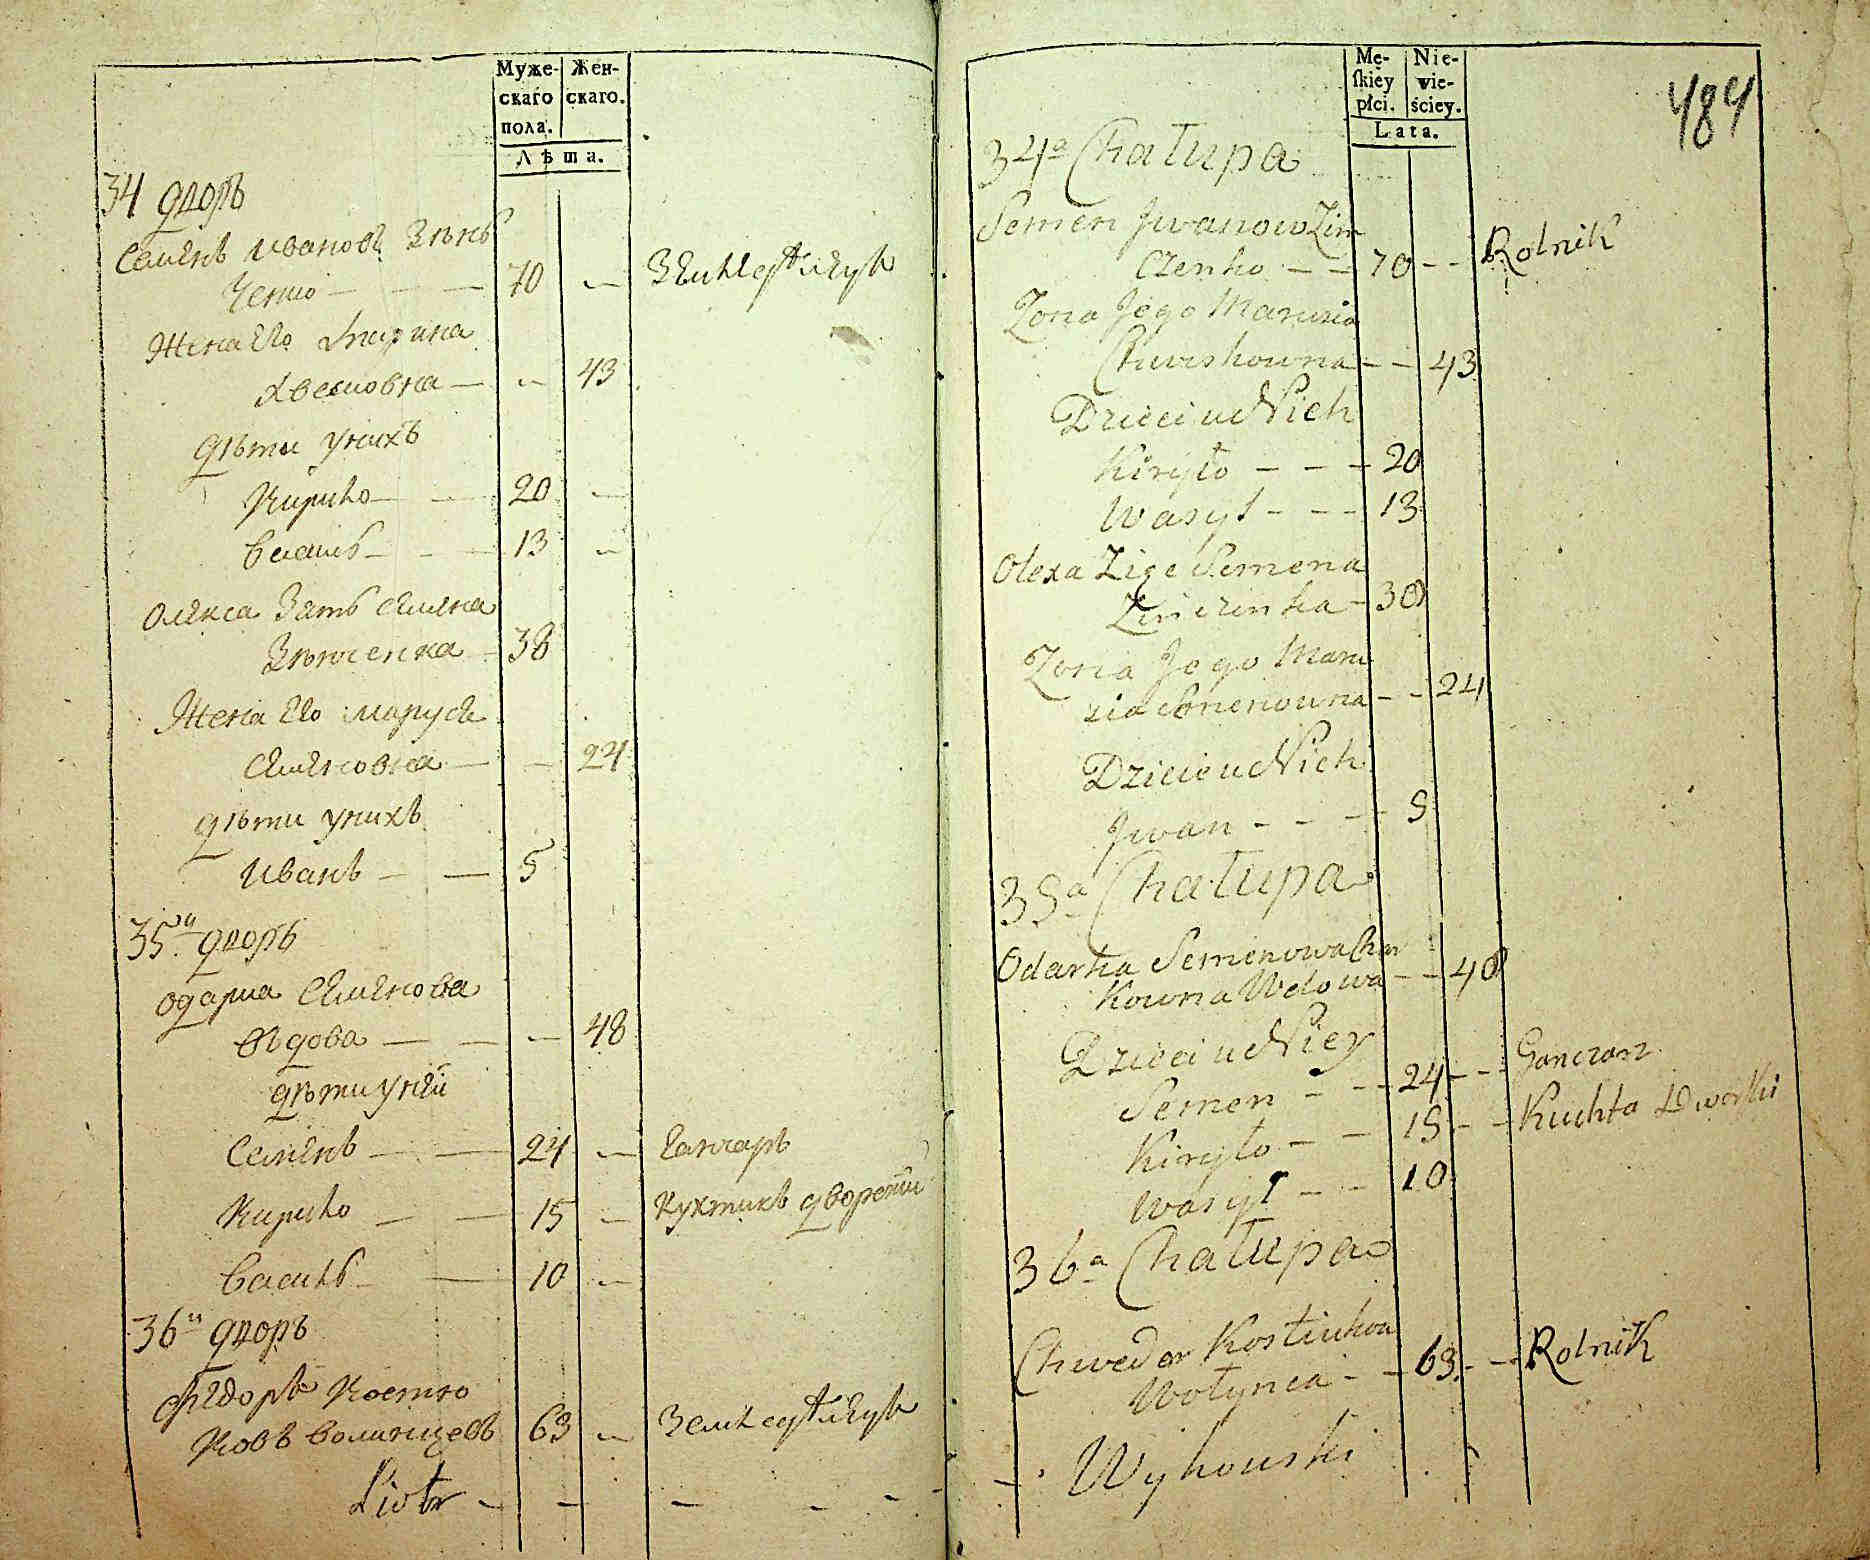 Муже-
скаго
пола.
Жен-
скаго.
Лѣта.
34 дворъ
Семенъ Ивановъ Зѣнь
ченко — — — 70 — Земледѣлецъ
Жена Его Марина
Хвесковна — — 43
дѣти унихъ
Кирило — — 20 —
Василь — — 13 —
Олекса Зять Семена
Зѣнченка — 38
Жена Его Маруся
Семеновна — — 24
дѣти унихъ
Иванъ — — 5
35й дворъ
Одарка Семенова
вдова — — — 48
дѣти уней
Семенъ — — 24 — Ганчаръ
Кирило — — 15 — Кухтикъ дворскій
Василь — — 10 —
36й дворъ
Федоръ Костю
ковъ Волинцевъ 63 — Земледѣлецъ
Piotr — — — — — —
Mę-
skiéy
płci.
Nie-
wie-
ściey.
Lata.
484
34a Chałupa
Semen Jwanow Zin
czenko — — 70 — — Rolnik
Zona Jego Marusia
— — 43
Dzieci u Nich
Kiryło — — — 20
Wasyl — — — 13
Olexa Zięc Semena
Zinczenka — 38
Zona Jego Maru
sia Semenowna — — 24
Dzieci u Nich
Jwan — — — 5
35a Chałupa
Odarka Semenowa Char
kowna Wdowa — — 48
Dzieci u Niey
Semen — — — 24 — — Ganczarz
Kiryło — — 15 — — Kuchta Dworski
Wasyl — — 10
36a Chałupa
Chwedor Kostiukow
Wołynca — — 63 — — Rolnik
— Wyhowski